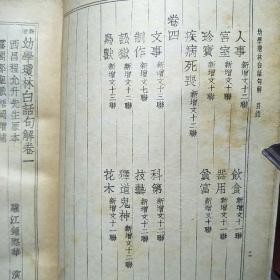 幼學瓊林白話句解 目錄
人事 新增文十二聯
飲食 新增文十一聯
宮室 新增文十二聯
器用 新增文十一聯
珍寶 新增文十二聯
貧富 新增文十一聯
疾病死喪 新增文十二聯
卷四
文事 新增文十三聯
科第 新增文十二聯
制作 新增文十一聯
技藝 新增文十二聯
訟獄 新增文十一聯
釋道鬼神 新增文十二聯
鳥獸 新增文十二聯
花木 新增文十二聯
幼學瓊林白話句解卷一
西昌程允升先生原本